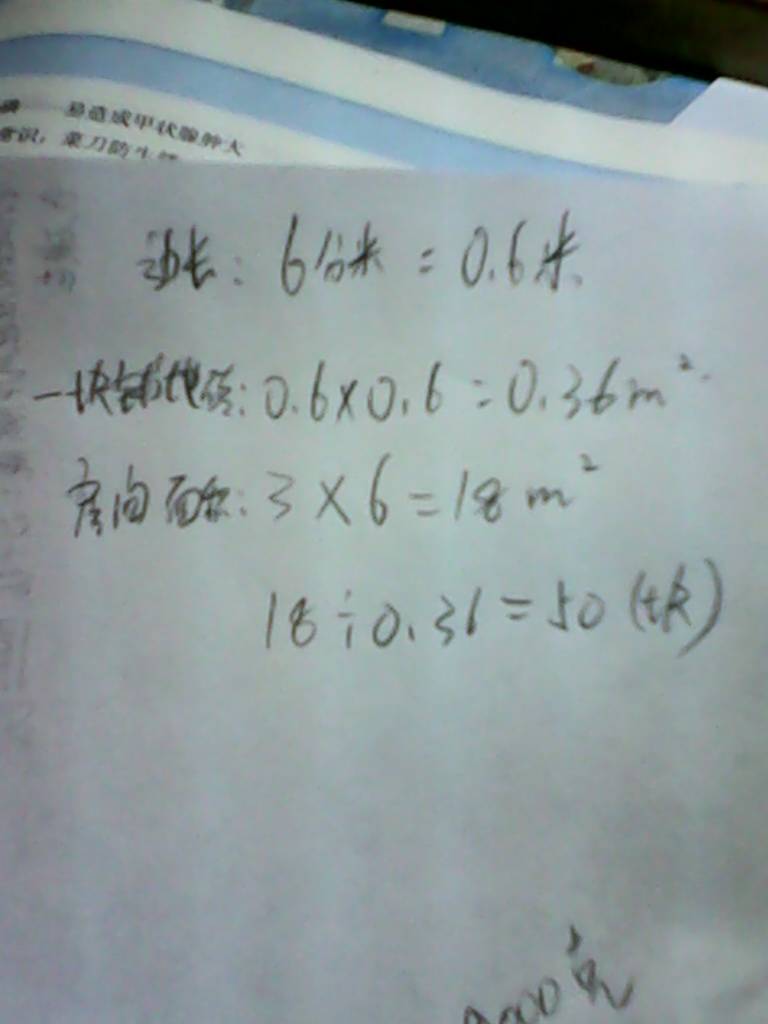 易造成甲状腺肿大
常识，菜刀防生锈
边长：6分米=0.6米
一块铺地砖：0.6×0.6=0.36m²
房间面积：3×6=18m²
18÷0.36=50(块)
000克